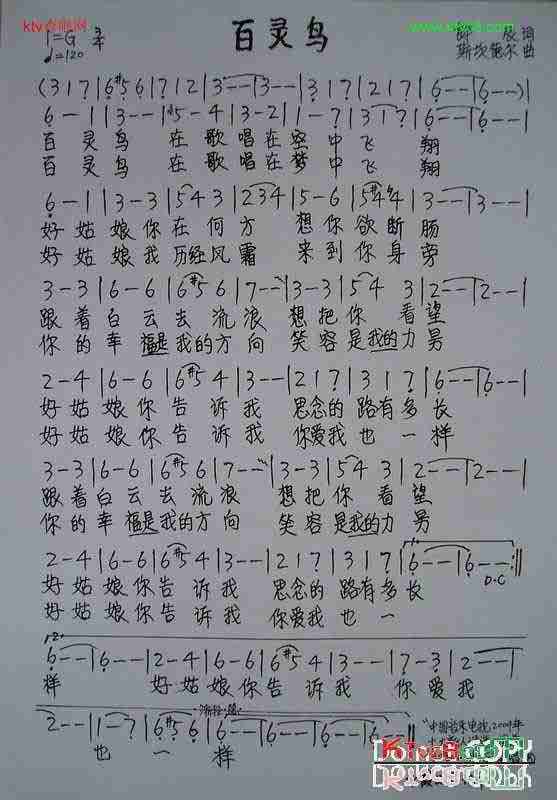 百灵鸟
1=G 3/4
♩=120
词
斯坎 尔 曲
(3 1 7̣ | 6̣ #5̣ 6̣ | 7̣ 1 2 | 3 - - | 3 - - | 3 1 7̣ | 2 1 7̣ | 6̣ - - | 6̣ - - )|
百 灵 鸟 在 歌 唱 在 空 中 飞 翔
百 灵 鸟 在 歌 唱 在 梦 中 飞 翔
6̣ - 1 | 3 - 3 | 5 4 3 | 2 3 4 | 5 - 6 | 5 #4 | 3 - - | 3 - - |
好 姑 娘 你 在 何 方 想 你 欲 断 肠
好 姑 娘 我 历经 风 霜 来 到 你 身 旁
3 - 3 | 6 - 6 | 6 #5 6 | 7 - - | 3 - 3 | 5 4 3 | 2 - - | 2 - - |
跟 着 白 云 去 流 浪 想 把 你 看 望
你 的 幸 福是 我的 方 向 笑 容 是 我的 力 另
2 - 4 | 6 - 6 | 6 #5 4 | 3 - - | 2 1 7̣ | 3 1 7̣ | 6̣ - - | 6̣ - - |
好 姑 娘 你 告 诉 我 思 念 的 路 有 多 长
好 姑 娘 你 告 诉 我 你 爱 我 也 一 样
3 - 3 | 6 - 6 | 6 #5 6 | 7 - - | 3 - 3 | 5 4 3 | 2 - - | 2 - - |
跟 着 白 云 去 流 浪 想 把 你 看 望
你 的 幸 福是 我的 方 向 笑 容 是 我的 力 另
2 - 4 | 6 - 6 | 6 #5 4 | 3 - - | 2 1 7̣ | 3 1 7̣ | 6̣ - - | 6̣ - - :||
D.C
好 姑 娘 你 告 诉 我 思 念 的 路 有 多 长
好 姑 娘 你 告 诉 我 你 爱 我 也 一
2.
6̣ - - | 6̣ - - | 2 - 4 | 6 - 6 | 6 #5 4 | 3 - - | 7̣ - 3 | 2 - - |
样 好 姑 娘 你 告 诉 我 你 爱 我
2 - - | 1 - 7̣ | 6̣ #5̣ | 6̣ - - | 6̣ - - | 6̣ - - | 6̣ - - ||
也 一 样